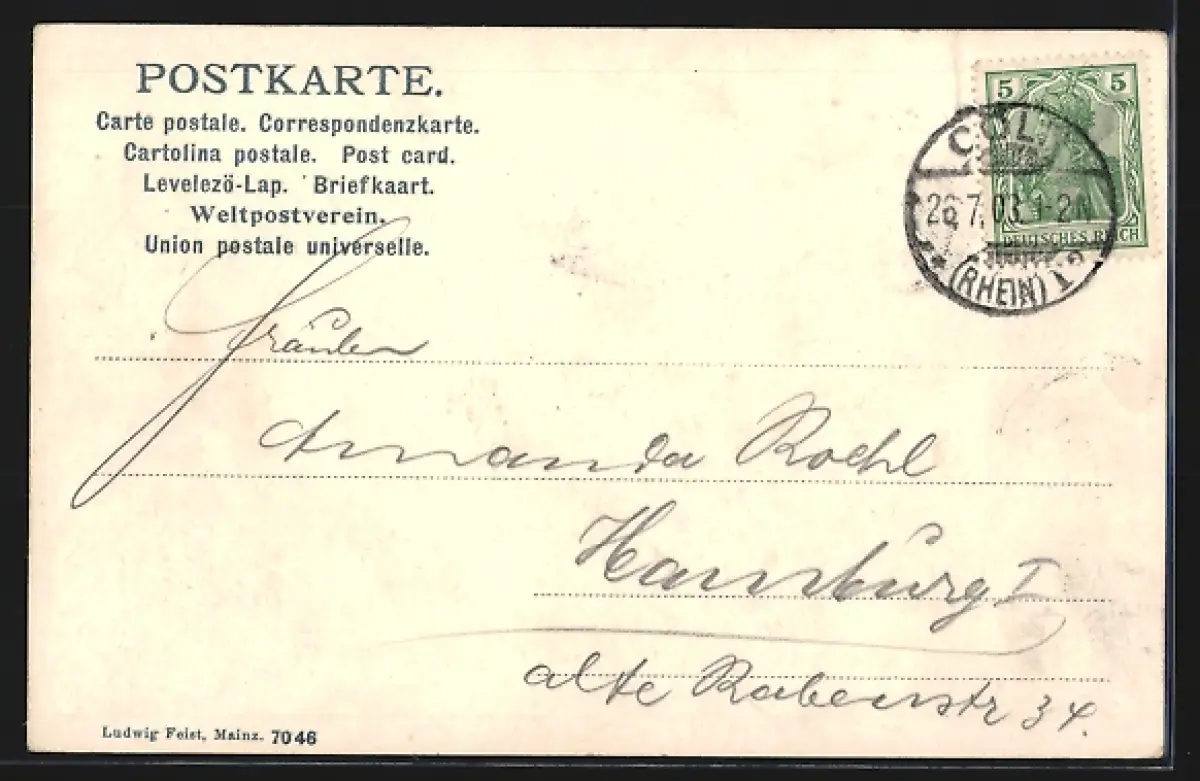 POSTKARTE.
Carte postale. Correspondenzkarte.
Cartolina postale. Post card.
Levelezö-Lap. Briefkaart.
Weltpostverein.
Union postale universelle.
5 5
DEUTSCHES REICH
CÖLN
26.7.03.1-2N
(RHEIN) 1
Fräulein
Amanda Roehl
Hamburg I
alte Rabenstr 34.
Ludwig Feist, Mainz. 7046